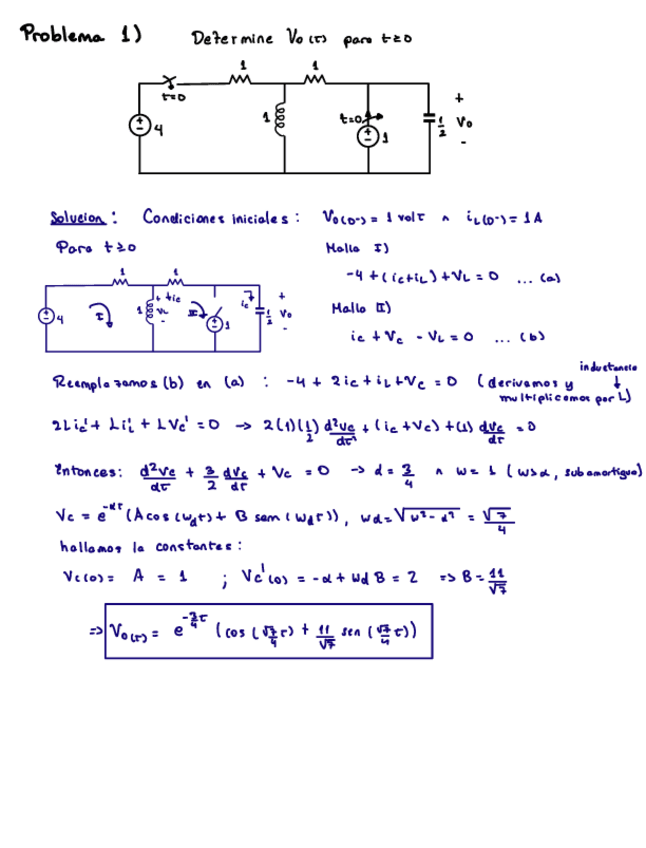 Problema 1) Determine Vo(t) para t≥0
1 1
t=0
4
1
t=0
1
1/2
+
Vo
-
Solucion: Condiciones iniciales: Vo(0-) = 1 volt ∧ iL(0-) = 1A
Para t≥0 Malla I)
-4 + (ic+iL) + VL = 0 ... (a)
Malla II)
ic + Vc - VL = 0 ... (b)
1 1
4
I
1
+
VL
-
ic
II
1
ic
1/2
+
Vo
-
Reemplazamos (b) en (a) : -4 + 2ic + iL + Vc = 0 (derivamos y multiplicamos por L)
inductancia
2Lic' + LiL' + LVc' = 0 → 2(1)(1/2) d²Vc/dt² + (ic + Vc) + (1) dVc/dt = 0
Entonces: d²Vc/dt + 3/2 dVc/dt + Vc = 0 → α = 3/4 ∧ w = 1 (w>α, subamortiguo)
Vc = e^-αt (A cos(wdt) + B sem(wdt)), wd = √w²-α² = √7/4
hallamos la constantes:
Vc(0) = A = 1 ; Vc'(0) = -α + wd B = 2 => B = 11/√7
=> Vo(t) = e^-3/4t (cos(√7/4 t) + 11/√7 sen(√7/4 t))